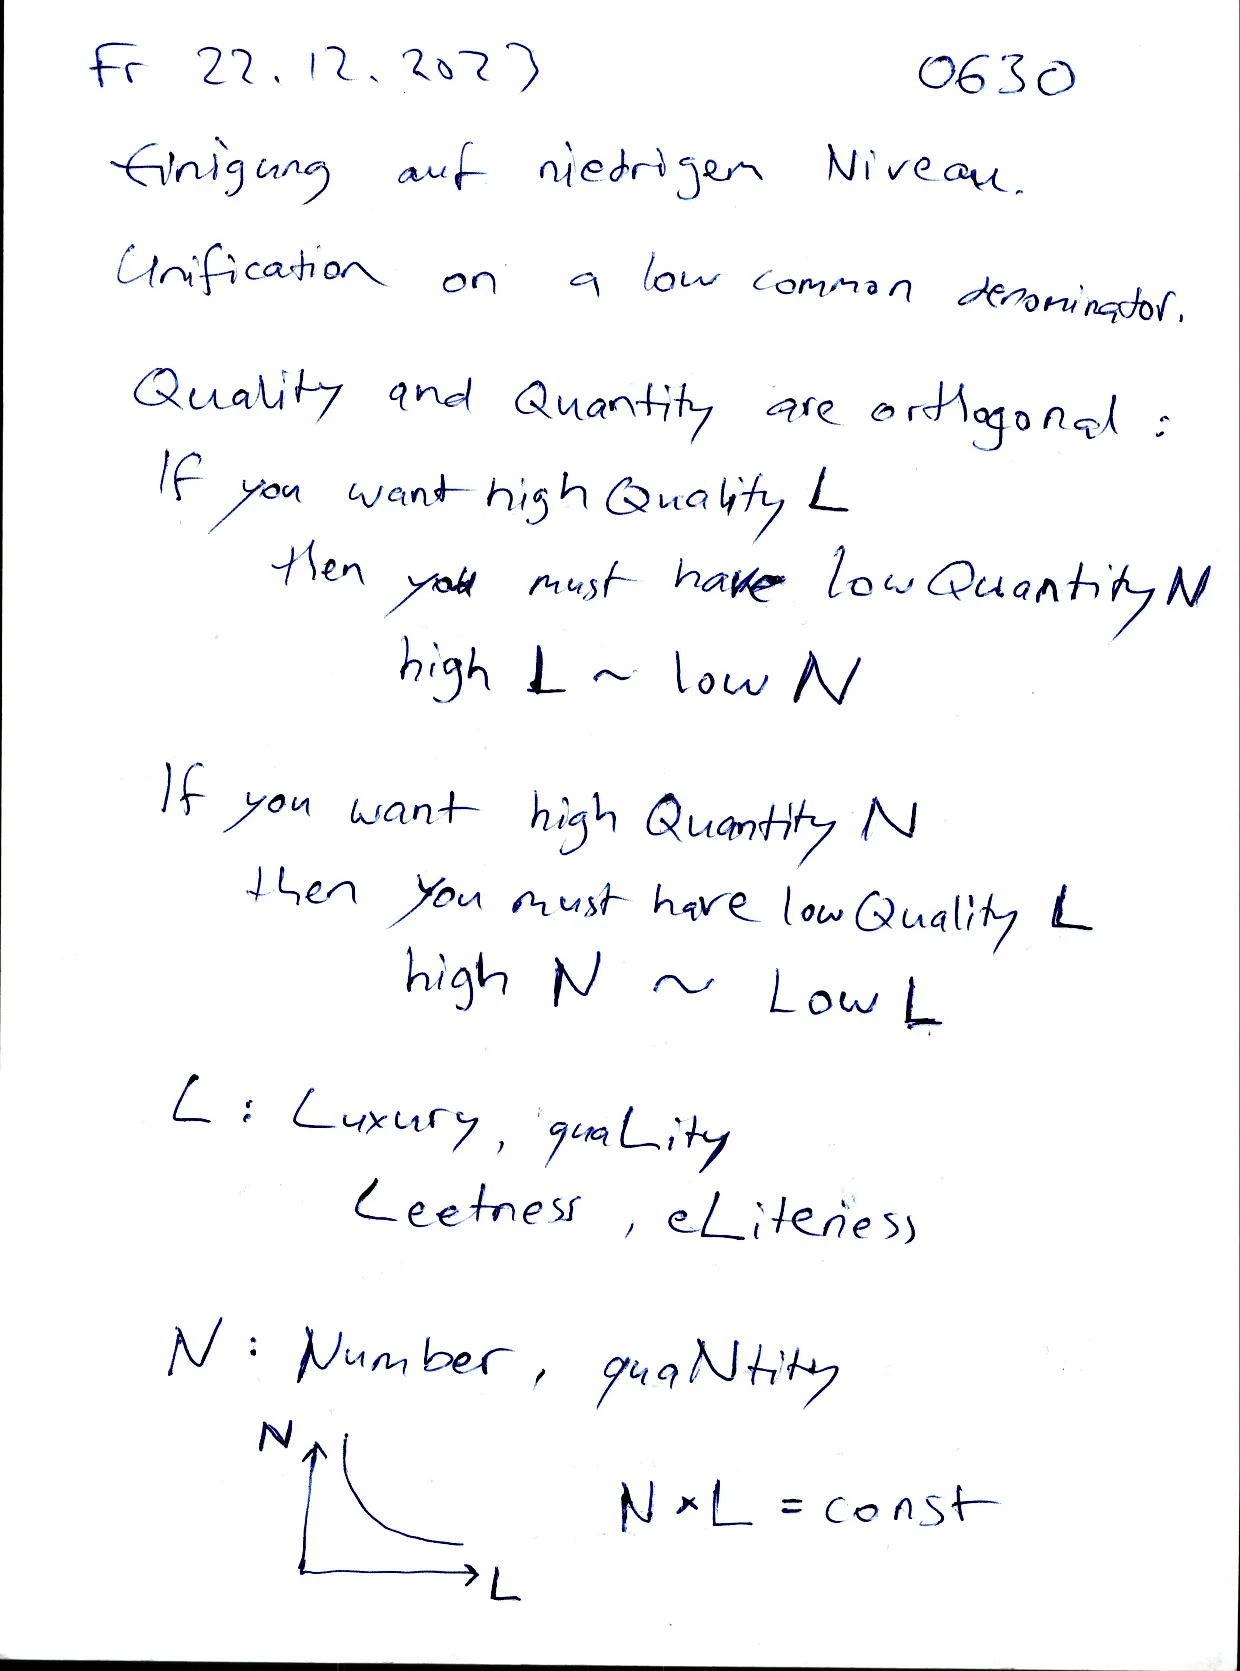 Fr 22.12.2023 0630
Einigung auf niedrigem Niveau.
Unification on a low common denominator.
Quality and Quantity are orthogonal:
If you want high Quality L
then you must have low Quantity N
high L ~ low N
If you want high Quantity N
then you must have low Quality L
high N ~ Low L
L: Luxury, quaLity
Leetness, eLiteness
N: Number, quaNtity
N
N × L = const
L